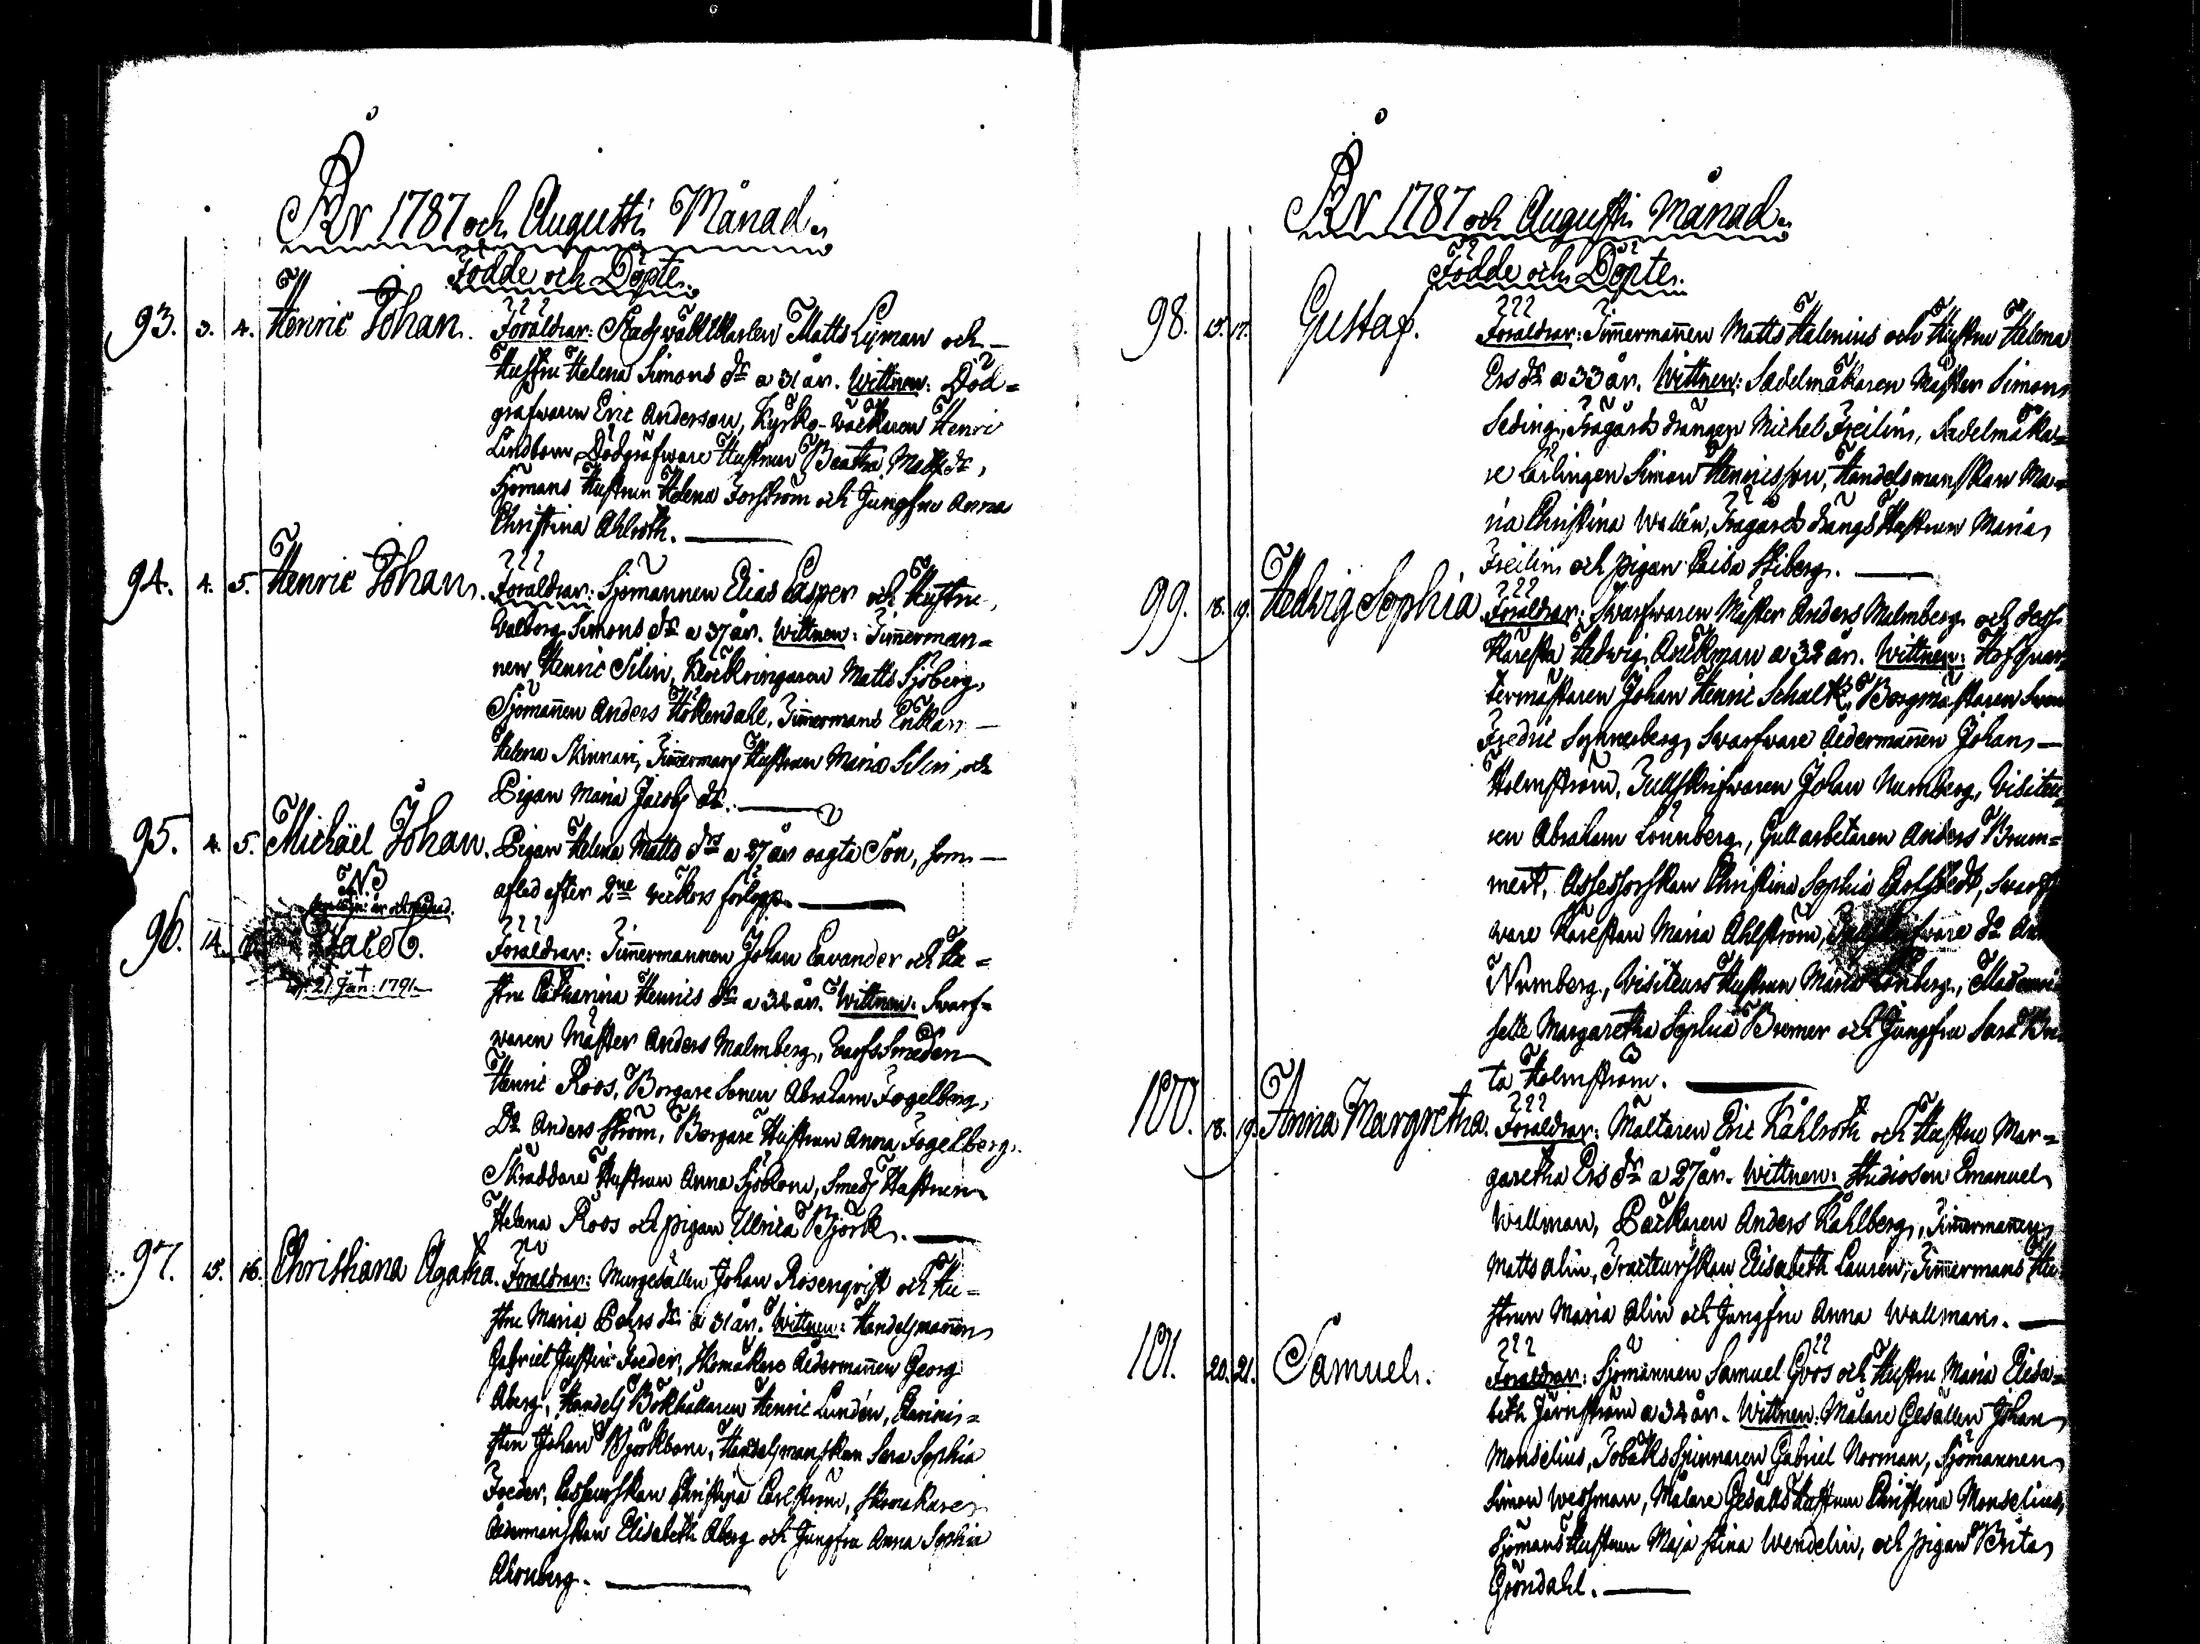 År 1787 och Augusti Månad.
Födde och Döpte.
93. 3. 4. Henric Johan. Föräldrar: Stadswaktkarlen Matts Lyman och
Hustru Helena Simons dr a 31 år. Wittnen: Död=
grafwaren Eric Anderson, Kyrko-wäcktaren Henric
Lindbom, Dödgräfware Hustrun Beatha Matts dr,
Sjömans Hustrun Helena Forsström och Jungfru Anna
Christina Ahlroth.
94. 4. 5. Henric Johan. Föräldrar: Sjömannen Elias Casper och Hustru
Walborg Simons dr a 37 år. Wittnen: Timmerman=
nen Henric Silin, Klockringaren Matts Sjöberg,
Sjömannen Anders Hökendahl, Timmermans Enkan
Helena Kinnari, Timmermans Hustrun Maria Silin, och
Pigan Maria Jacobs dr.
95. 4. 5. Michäel Johan. Pigan Helena Matts drs a 27 år oägta Son, som
afled efter 2ne veckors förlopp.
NB
96. 14. Jacob. Föräldrar: Timmermannen Johan Lavander och Hu=
† 21 Jan. 1791.
stru Catharina Henrics dr a 32 år. Wittnen: Swarf=
waren Mäster Anders Malmberg, Varfs Smeden
Henric Roos, Borgare Sonen Abraham Fogelberg,
Do Anders Ström, Borgare Hustrun Anna Fogelberg.
Skräddare Hustrun Anna Sjöblom, Smeds Hustrun
Helena Roos och pigan Ulrica Björk.
97. 15. 16. Christiana Agatha. Föräldrar: Murgesällen Johan Rosenqvist och Hu=
stru Maria Pehrs dr a 31 år. Wittnen: Handelsmannen
Gabriel Justin Foeder, Skomakare Åldermannen Georg
Åberg, Handels Bokhållaren Henric Lundén,
Johan Björkbom, Handelsmanskan Sara Sophia
Foeder, Christina Carlström, Skomakare
Åldermanskan Elisabeth Åberg och Jungfru Anna Sophia
Ahrnberg.
År 1787 och Augusti Månad.
Födde och Döpte.
98. 15. 17. Gustaf. Föräldrar: Timmermannen Matts Halenius och Hustru Helena
Ers dr a 33 år. Wittnen: Sadelmakaren Mäster Simon
Seding, Trägårds drängen Michel Freilin, Sadelmaka=
re Lärlingen Simon Henricsson, Handelsmanskan Ma=
ria Christina Wallén, Trägårds drängs Hustrun Maria
Freilin och pigan Caisa Stiberg.
99. 18. 19. Hedvig Sophia. Föräldrar: Swarfwaren Mäster Anders Malmberg och dess
Käresta Hedwig a 32 år. Wittnen:
termästaren Johan Henric Schalk, Borgmästaren
Fredric Sonnerberg, Swarfware Åldermannen Johan
Holmström, Tullskrifwaren Johan Nurnberg, Visiteu=
ren Abraham Lönnberg, Gullarbetaren Anders Brum=
mert, Assessorskan Christina Sophia Carlstedt,
ware Kärestan Maria Ahlström,
Nurnberg, Visiteurs Hustrun Maria Lönberg, Mademoi
selle Margaretha Sophia Bremer och Jungfru Sara
ta Holmström.
100. 18. 19. Anna Margretha. Föräldrar: Mältaren Eric Kåhlroth och Hustru Mar=
garetha Ers dr a 27 år. Wittnen: Studiosen Emanuel
Wallman, Packaren Anders Kahlberg, Timmermannen
Matts Alin, Tracteurskan Elisabeth Lauren, Timmermans Hu
strun Maria Alin och Jungfru Anna Wallman.
101. 20. 21. Samuel. Föräldrar: Sjömannen Samuel Gröös och Hustru Maria Elisa=
beth Järnström a 32 år. Wittnen: Målare Gesällen Johan
Monselius, Tobaksspinnaren Gabriel Norman, Sjömannen
Simon Wessman, Målare Gesälls Hustrun Christina Monselius,
Sjömans Hustrun Maja Stina Wendelin, och pigan Brita
Gröndahl.